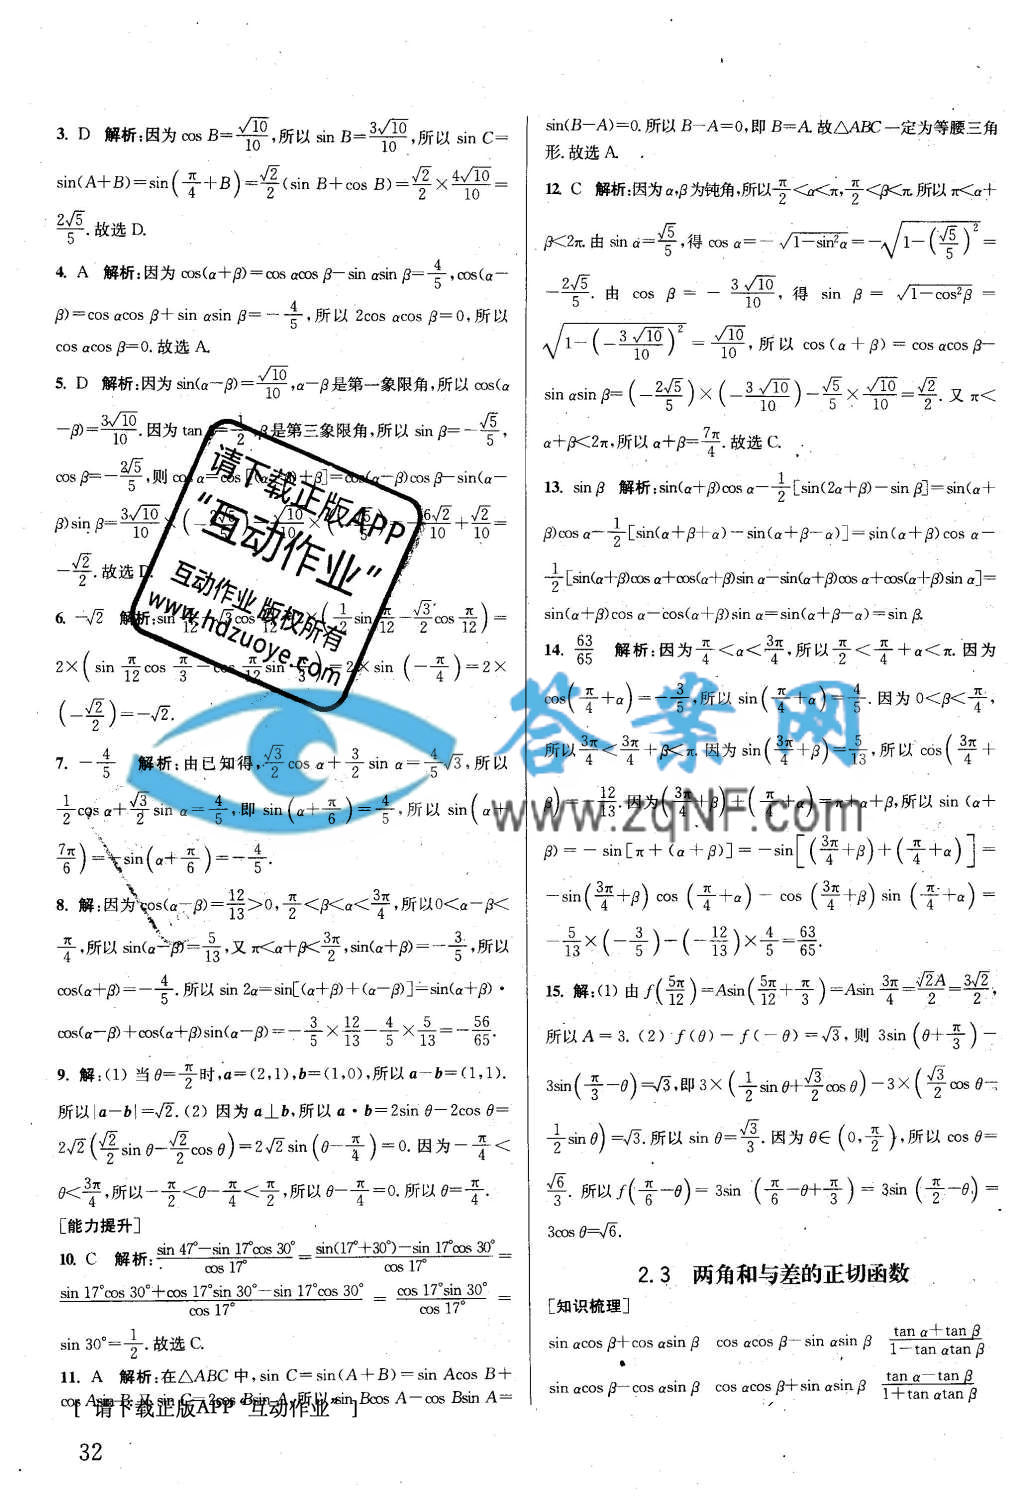 3. D 解析:因为 cos B=√10/10,所以 sin B=3√10/10,所以 sin C=
sin(A+B)=sin(π/4+B)=√2/2(sin B+cos B)=√2/2×4√10/10=
2√5/5.故选 D.
4. A 解析:因为 cos(α+β)=cos αcos β-sin αsin β=4/5,cos(α-
β)=cos αcos β+sin αsin β=-4/5,所以 2cos αcos β=0,所以
cos αcos β=0.故选 A.
5. D 解析:因为 sin(α-β)=√10/10,α-β是第一象限角,所以 cos(α
-β)=3√10/10.因为 tan β=1/2,β是第三象限角,所以 sin β=-√5/5,
cos β=-2√5/5,则 cos α=cos [(α-β)+β]=cos(α-β)cos β-sin(α-
β)sin β=3√10/10×(-2√5/5)-√10/10×(-√5/5)=-6√2/10+√2/10=
-√2/2.故选 D.
6. -√2 解析:sin π/12-√3cos π/12=2×(1/2 sin π/12-√3/2 cos π/12)=
2×(sin π/12 cos π/3-cos π/12 sin π/3)=2×sin(-π/4)=2×
(-√2/2)=-√2.
7. -4/5 解析:由已知得,√3/2 cos α+3/2 sin α=4/5√3,所以
1/2 cos α+√3/2 sin α=4/5,即 sin(α+π/6)=4/5,所以 sin(α+
7π/6)=-sin(α+π/6)=-4/5.
8. 解:因为 cos(α-β)=12/13>0,π/2<β<α<3π/4,所以0<α-β<
π/4,所以 sin(α-β)=5/13,又 π<α+β<3π/2,sin(α+β)=-3/5,所以
cos(α+β)=-4/5.所以 sin 2α=sin[(α+β)+(α-β)]=sin(α+β)·
cos(α-β)+cos(α+β)sin(α-β)=-3/5×12/13-4/5×5/13=-56/65.
9. 解:(1) 当θ=π/2时,a=(2,1),b=(1,0),所以 a-b=(1,1).
所以|a-b|=√2.(2) 因为 a⊥b,所以 a·b=2sin θ-2cos θ=
2√2(√2/2 sin θ-√2/2 cos θ)=2√2 sin(θ-π/4)=0.因为-π/4<
θ<3π/4,所以-π/2<θ-π/4<π/2,所以 θ-π/4=0.所以 θ=π/4.
[能力提升]
10. C 解析:(sin 47°-sin 17°cos 30°)/cos 17°=(sin(17°+30°)-sin 17°cos 30°)/cos 17°=
(sin 17°cos 30°+cos 17°sin 30°-sin 17°cos 30°)/cos 17°=(cos 17°sin 30°)/cos 17°=
sin 30°=1/2.故选 C.
11. A 解析:在△ABC 中,sin C=sin(A+B)=sin Acos B+
cos Asin B.又 sin C=2cos Bsin A,所以 sin Bcos A-cos Bsin A=
[ 请下载正版APP“互动作业” ]
32
sin(B-A)=0.所以 B-A=0,即 B=A.故△ABC 一定为等腰三角
形.故选 A.
12. C 解析:因为 α,β为钝角,所以π/2<α<π,π/2<β<π.所以 π<α+
β<2π.由 sin α=√5/5,得 cos α=-√(1-sin²α)=-√(1-(√5/5)²)=
-2√5/5.由 cos β=-3√10/10,得 sin β=√(1-cos²β)=
√(1-(-3√10/10)²)=√10/10,所以 cos(α+β)=cos αcos β-
sin αsin β=(-2√5/5)×(-3√10/10)-√5/5×√10/10=√2/2.又 π<
α+β<2π,所以 α+β=7π/4.故选 C.
13. sin β 解析:sin(α+β)cos α-1/2[sin(2α+β)-sin β]=sin(α+
β)cos α-1/2[sin(α+β+α)-sin(α+β-α)]=sin(α+β)cos α-
1/2[sin(α+β)cos α+cos(α+β)sin α-sin(α+β)cos α+cos(α+β)sin α]=
sin(α+β)cos α-cos(α+β)sin α=sin(α+β-α)=sin β.
14. 63/65 解析:因为π/4<α<3π/4,所以π/2<π/4+α<π.因为
cos(π/4+α)=-3/5,所以 sin(π/4+α)=4/5.因为 0<β<π/4,
所以3π/4<3π/4+β<π.因为 sin(3π/4+β)=5/13,所以 cos(3π/4+
β)=-12/13.因为(3π/4+β)+(π/4+α)=π+α+β,所以 sin(α+
β)=-sin[π+(α+β)]=-sin[(3π/4+β)+(π/4+α)]=
-sin(3π/4+β)cos(π/4+α)-cos(3π/4+β)sin(π/4+α)=
-5/13×(-3/5)-(-12/13)×4/5=63/65.
15. 解:(1) 由 f(5π/12)=Asin(5π/12+π/3)=Asin 3π/4=√2A/2=3√2/2,
所以 A=3.(2) f(θ)-f(-θ)=√3,则 3sin(θ+π/3)-
3sin(π/3-θ)=√3,即 3×(1/2 sin θ+√3/2 cos θ)-3×(√3/2 cos θ-
1/2 sin θ)=√3.所以 sin θ=√3/3.因为 θ∈(0,π/2),所以 cos θ=
√6/3.所以 f(π/6-θ)=3sin(π/6-θ+π/3)=3sin(π/2-θ)=
3cos θ=√6.
2.3 两角和与差的正切函数
[知识梳理]
sin αcos β+cos αsin β cos αcos β-sin αsin β (tan α+tan β)/(1-tan αtan β)
sin αcos β-cos αsin β cos αcos β+sin αsin β (tan α-tan β)/(1+tan αtan β)
请下载正版APP
“互动作业”
互动作业 版权所有
www.hdzuoye.com
答案网
www.zqNF.com